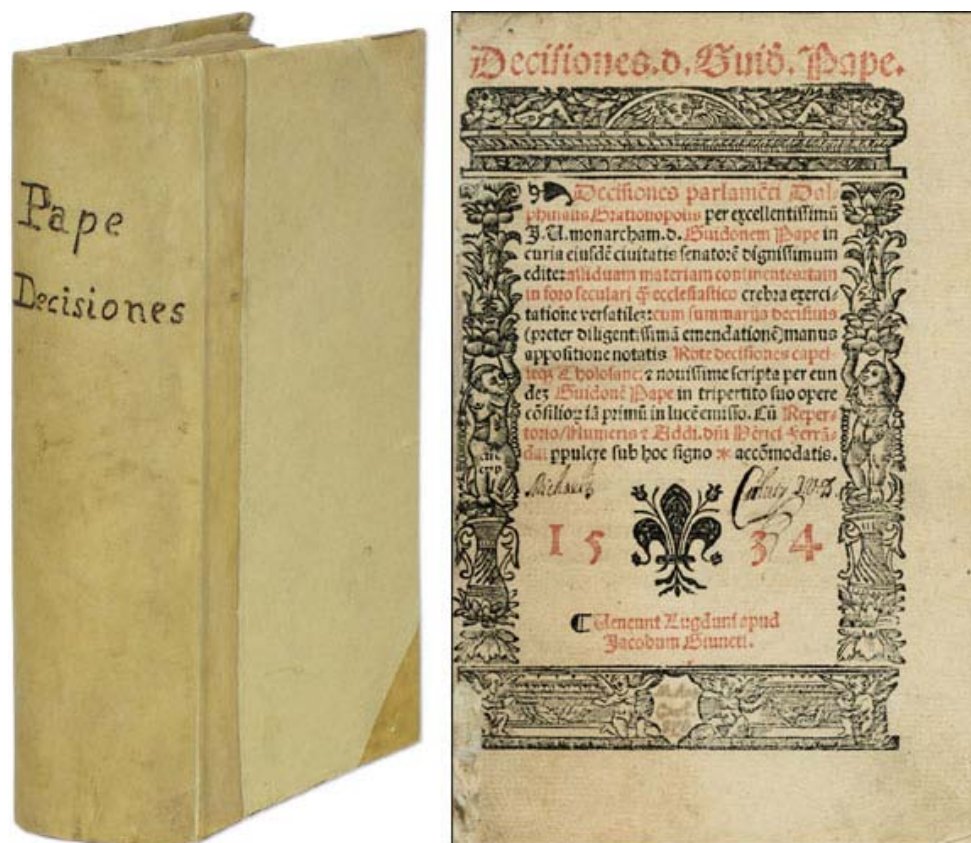 Pape
Decisiones
Decisiones. d. Guid. Pape.
Decisiones parlamēti Dal-
phinalis Grationopolis per excellentissimū
J. U. monarcham. d. Guidonem Pape in
curia eiusdē ciuitatis senatorē dignissimum
edite: assiduam materiam continentes: tam
in foro seculari q̄ ecclesiastico crebra exerci-
tatione versatilez: cum summarijs decisiuis
(preter diligentissimā emendationē) manus
appositione notatis Rote decisiones capel-
leqz Tholosane: ⁊ nouissime scripta per eun
dez Guidonē Pape in tripertito suo opere
cōsilioꝝ iā primū in lucē emisso. Cū Reper-
torio/Numeris ⁊ Addi. dn̄i
ppulcre sub hoc signo * accōmodatis.
Michault
15 34
Veneunt Lugduni apud
Jacobum Giuncti.